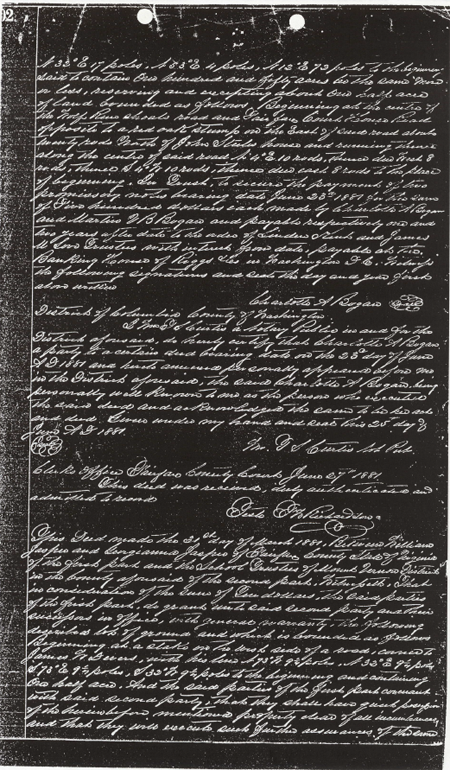 92.
N 33° E 17 poles, N 53° E 4 poles, N 12° E 72 poles to the beginning
said to contain One hundred and fifty acres be the same more
or less, reserving and excepting about One half acre
of land bounded as follows, Beginning at the centre of
the road and Fairfax Court House Road
opposite to a red oak stump on the East of said road about
twenty rods North of John house and running thence
along the centre of said road N 4° E 10 rods, thence due West 8
rods, thence S 4° W 10 rods, thence due east 8 rods to the place
of beginning. In Trust, to secure the payment of two
promissory notes bearing date June 23d 1881 for the sum
of Five hundred dollars each made by Charlotte A Bogan
and Martin V B Bogan and payable respectively one and
two years after date to the order of and James
with interest from date, payable at the
Banking House of Riggs & Co in Washington D.C. Witness
the following signatures and seal the day and year first
above written
Charlotte A Bogan Seal
District of Columbia County of Washington
I a Notary Public in and for the
District aforesaid, do hereby certify that Charlotte A Bogan
a party to a certain deed bearing date on the 23d day of June
A.D. 1881 and hereto annexed personally appeared before me
in the District aforesaid, the said Charlotte A Bogan being
personally well known to me as the person who executed
the said deed and acknowledged the same to be her act
and deed. Given under my hand and seal this 25 day of
June A.D. 1881.
Curtis Not Pub.
Clerks Office Fairfax County Court June 27th 1881.
This deed was received, duly authenticated and
admitted to record
Teste F W Richardson
This Deed made the day of March 1881, Between William
Jasper and Georgianna Jasper of Fairfax County State of Virginia
of the first part and the School Trustees of Mount Vernon District
in the County aforesaid of the second part. Witnesseth: That
in consideration of the Sum of Ten dollars the said parties
of the first part, do grant unto said second party and their
successors in office, with general warranty the following
described lot of ground and which is bounded as follows
Beginning at a stake on the west side of a road, corner to
James W with his line N 73° W 9½ poles, N 33° E 9½ poles
S 73° E 9½ poles, S 33° W 9½ poles to the beginning and containing
One half acre. And the said parties of the first part covenant
with said second party, that they shall have quiet possession
of the hereinbefore mentioned property clear of all incumbrances,
and that they will execute such further assurances of the same